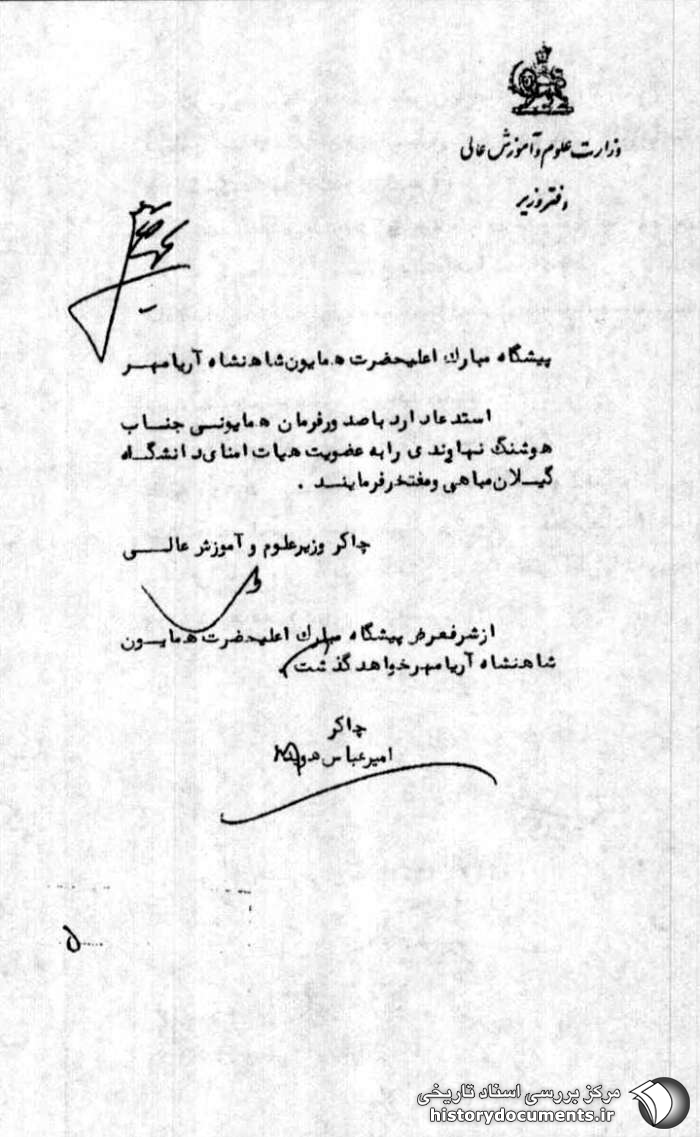 وزارت علوم و آموزش عالی
دفتر وزیر
پیشگاه مبارک اعلیحضرت همایون شاهنشاه آریامهر
استدعا دارد با صدور فرمان همایونی جناب
هوشنگ نهاوندی را به عضویت هیات امنای دانشگاه
گیلان مباهی و مفتخر فرمایند .
چاکر وزیر علوم و آموزش عالی
از شرفعرض پیشگاه مبارک اعلیحضرت همایون
شاهنشاه آریامهر خواهد گذشت .
چاکر
امیرعباس هویدا
۵
مرکز بررسی اسناد تاریخی
historydocuments.ir